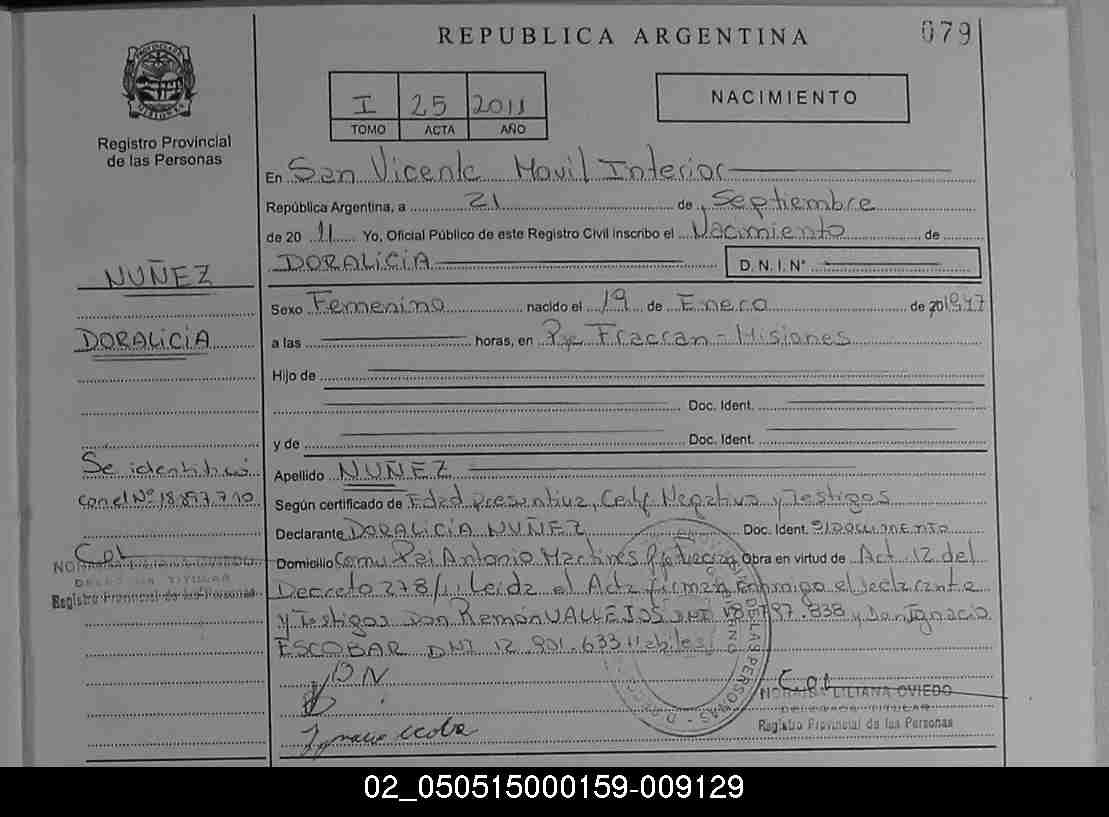 REPUBLICA ARGENTINA
079
Registro Provincial
de las Personas
I 25 2011
TOMO ACTA AÑO
NACIMIENTO
En San Vicente Movil Interior
República Argentina, a 21 de Septiembre
de 20 11 Yo, Oficial Público de este Registro Civil inscribo el Nacimiento de
DORALICIA D.N.I. N°
NUÑEZ
DORALICIA
Sexo Femenino nacido el 19 de Enero de 1947
a las horas, en Pje Fracran - Misiones
Hijo de
Doc. Ident.
y de Doc. Ident.
Se identificó
con el Nº 18.857.710
Apellido NUÑEZ
Según certificado de Edad presuntiva, Certf Negativo y Testigos
Declarante DORALICIA NUÑEZ Doc. Ident. S/DOCUMENTO
Domicilio Comu Pai Antonio Martines Obra en virtud de Act. 12 del
Decreto 278/11 Leida el Acta firman conmigo el declarante
y Testigos Don Ramón VALLEJOS DNI 18.797.838 y Don Ignacio
ESCOBAR DNI 12.901.633 Habiles
DELEGADA TITULAR
Registro Provincial de las Personas
DN
NORAIBA LILIANA OVIEDO
DELEGADA TITULAR
Registro Provincial de las Personas
02_050515000159-009129